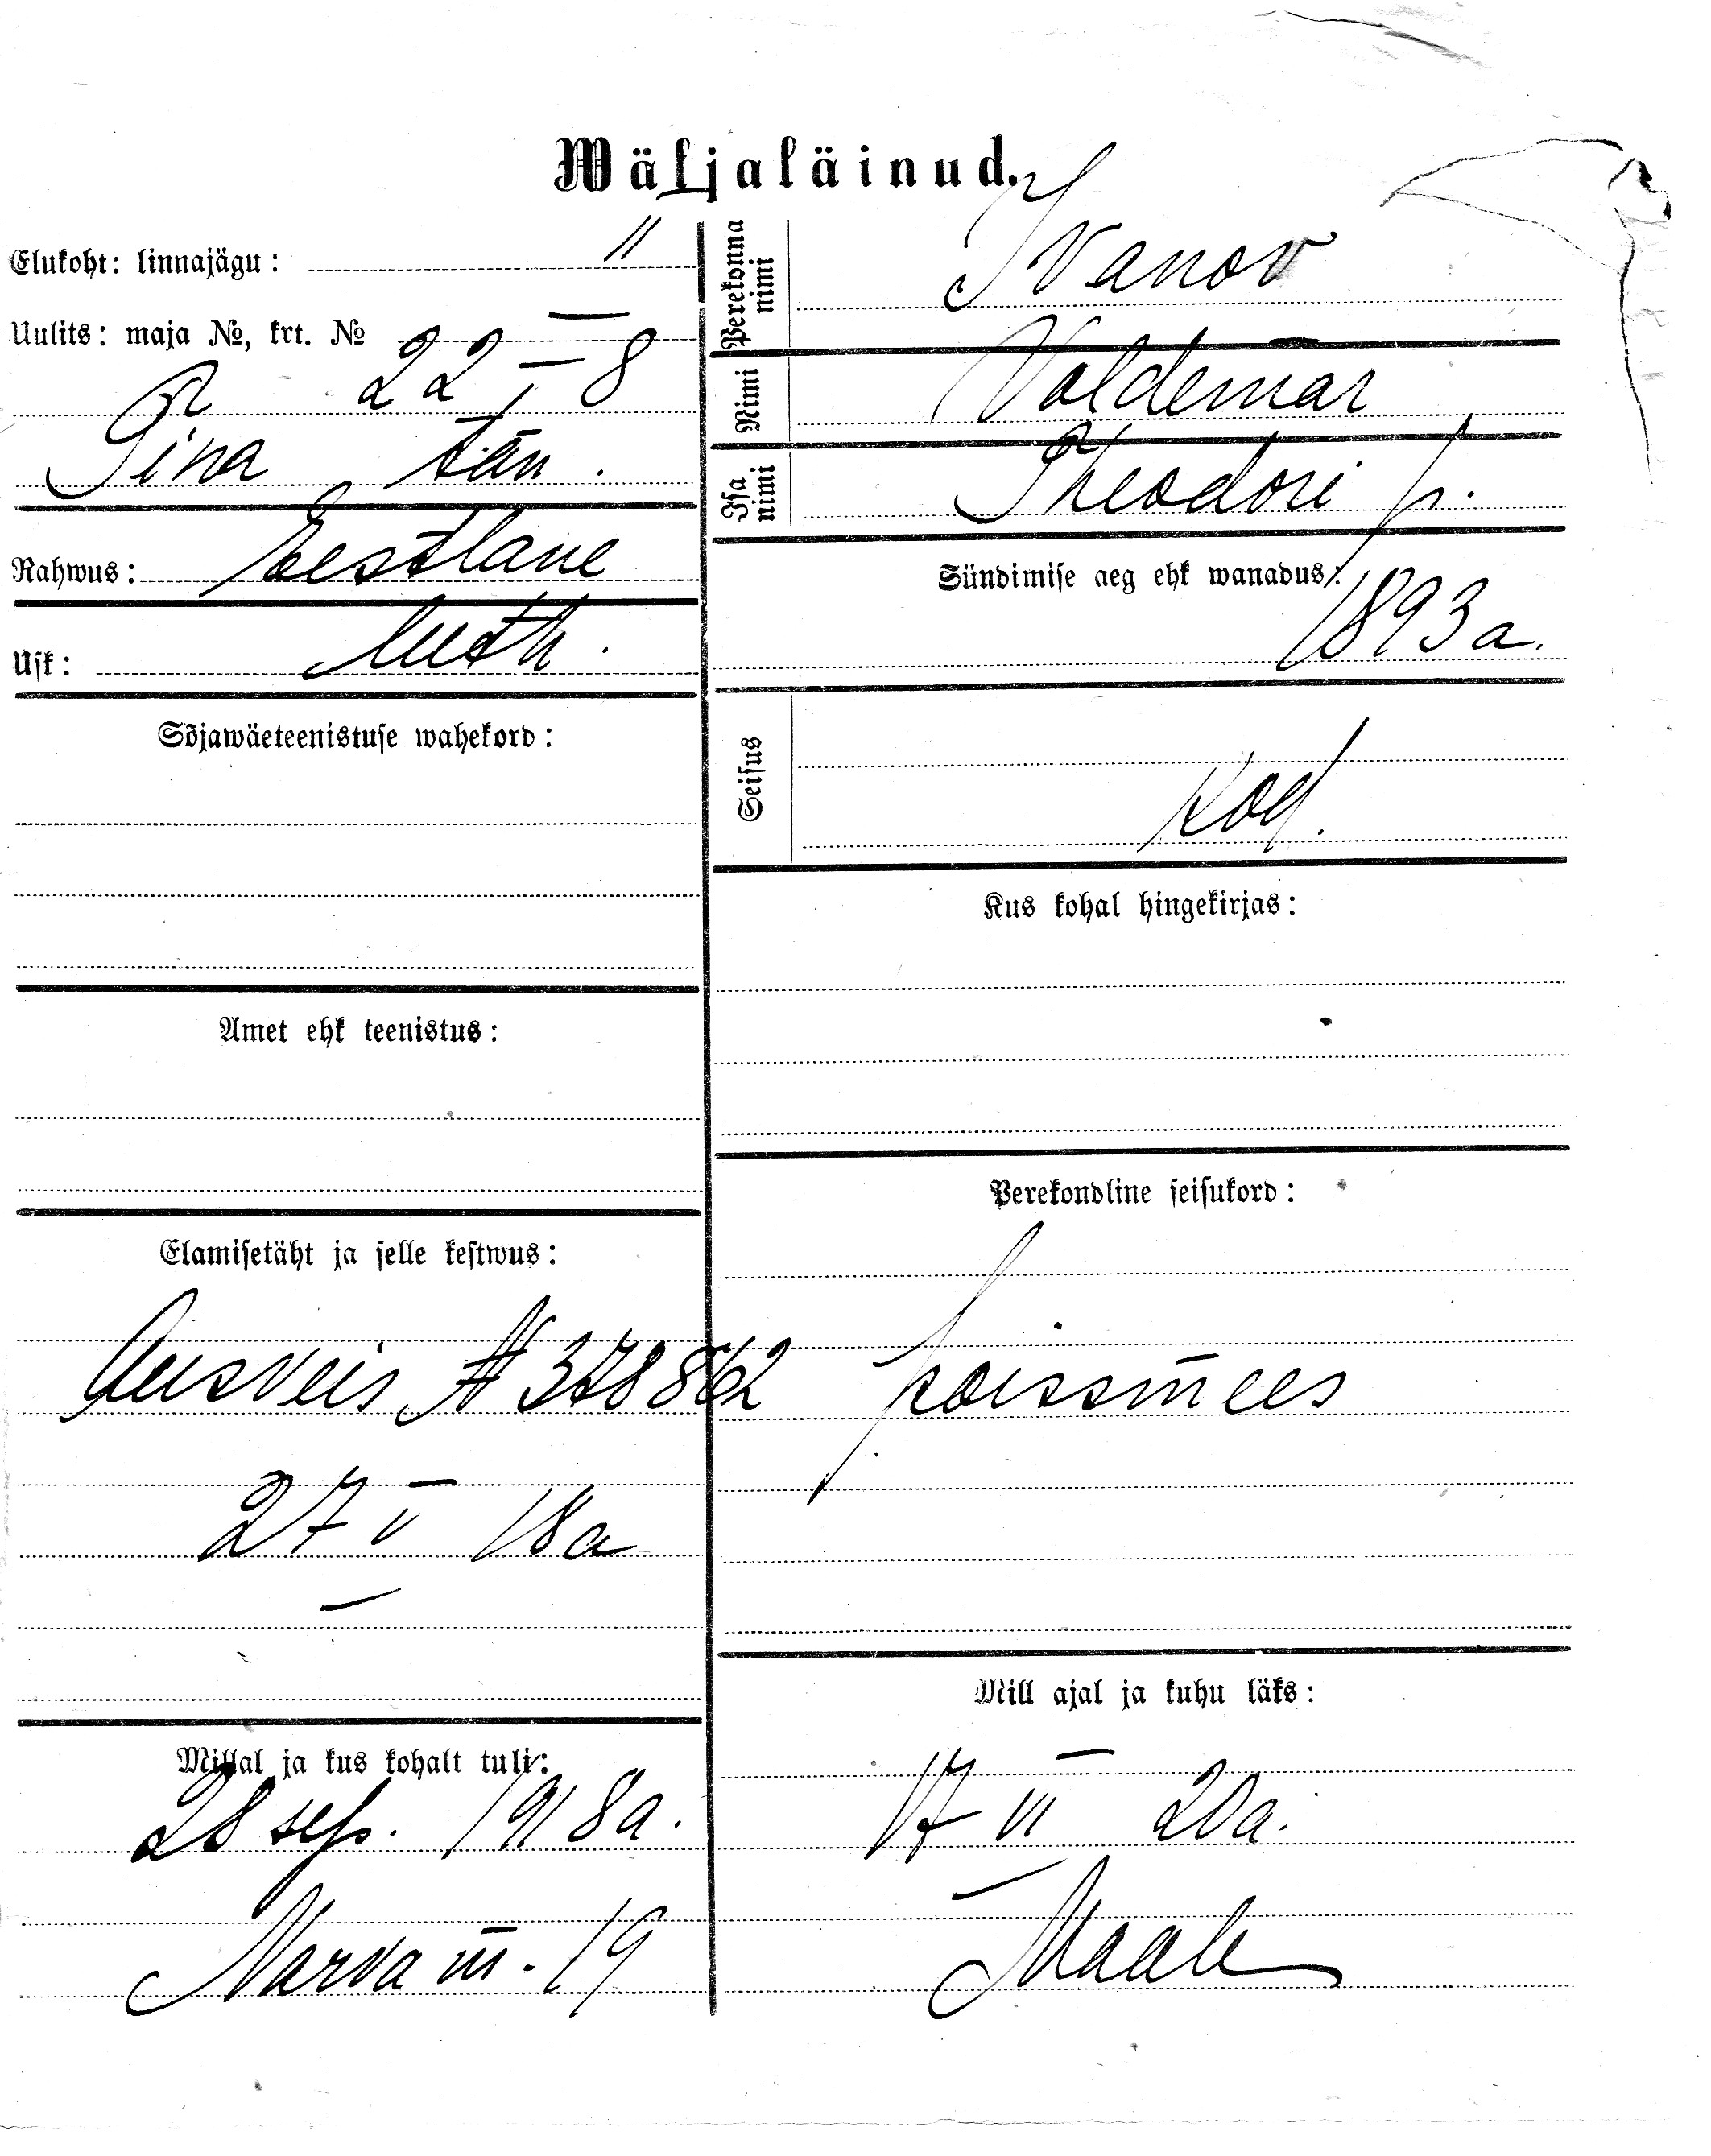 Wäljaläinud.
Elukoht: linnajägu: II
Uulits: maja №, krt. № 22 – 8
Tina tän.
Rahwus: Eestlane
Usk: Luth.
Sõjawäeteenistuse wahekord:
Amet ehk teenistus:
Elamisetäht ja selle kestwus:
Ausveis № 378862
27 V 18 a
Millal ja kus kohalt tuli:
28 sep. 1918 a.
Narva m. - 19
Perekonna nimi Ivanov
Nimi Voldemar
Isa nimi Theodori p.
Sündimise aeg ehk wanadus:
1893 a.
Seisus kod.
Kus kohal hingekirjas:
Perekondline seisukord:
poissmees
Mill ajal ja kuhu läks:
17 VI 20 a.
Maale